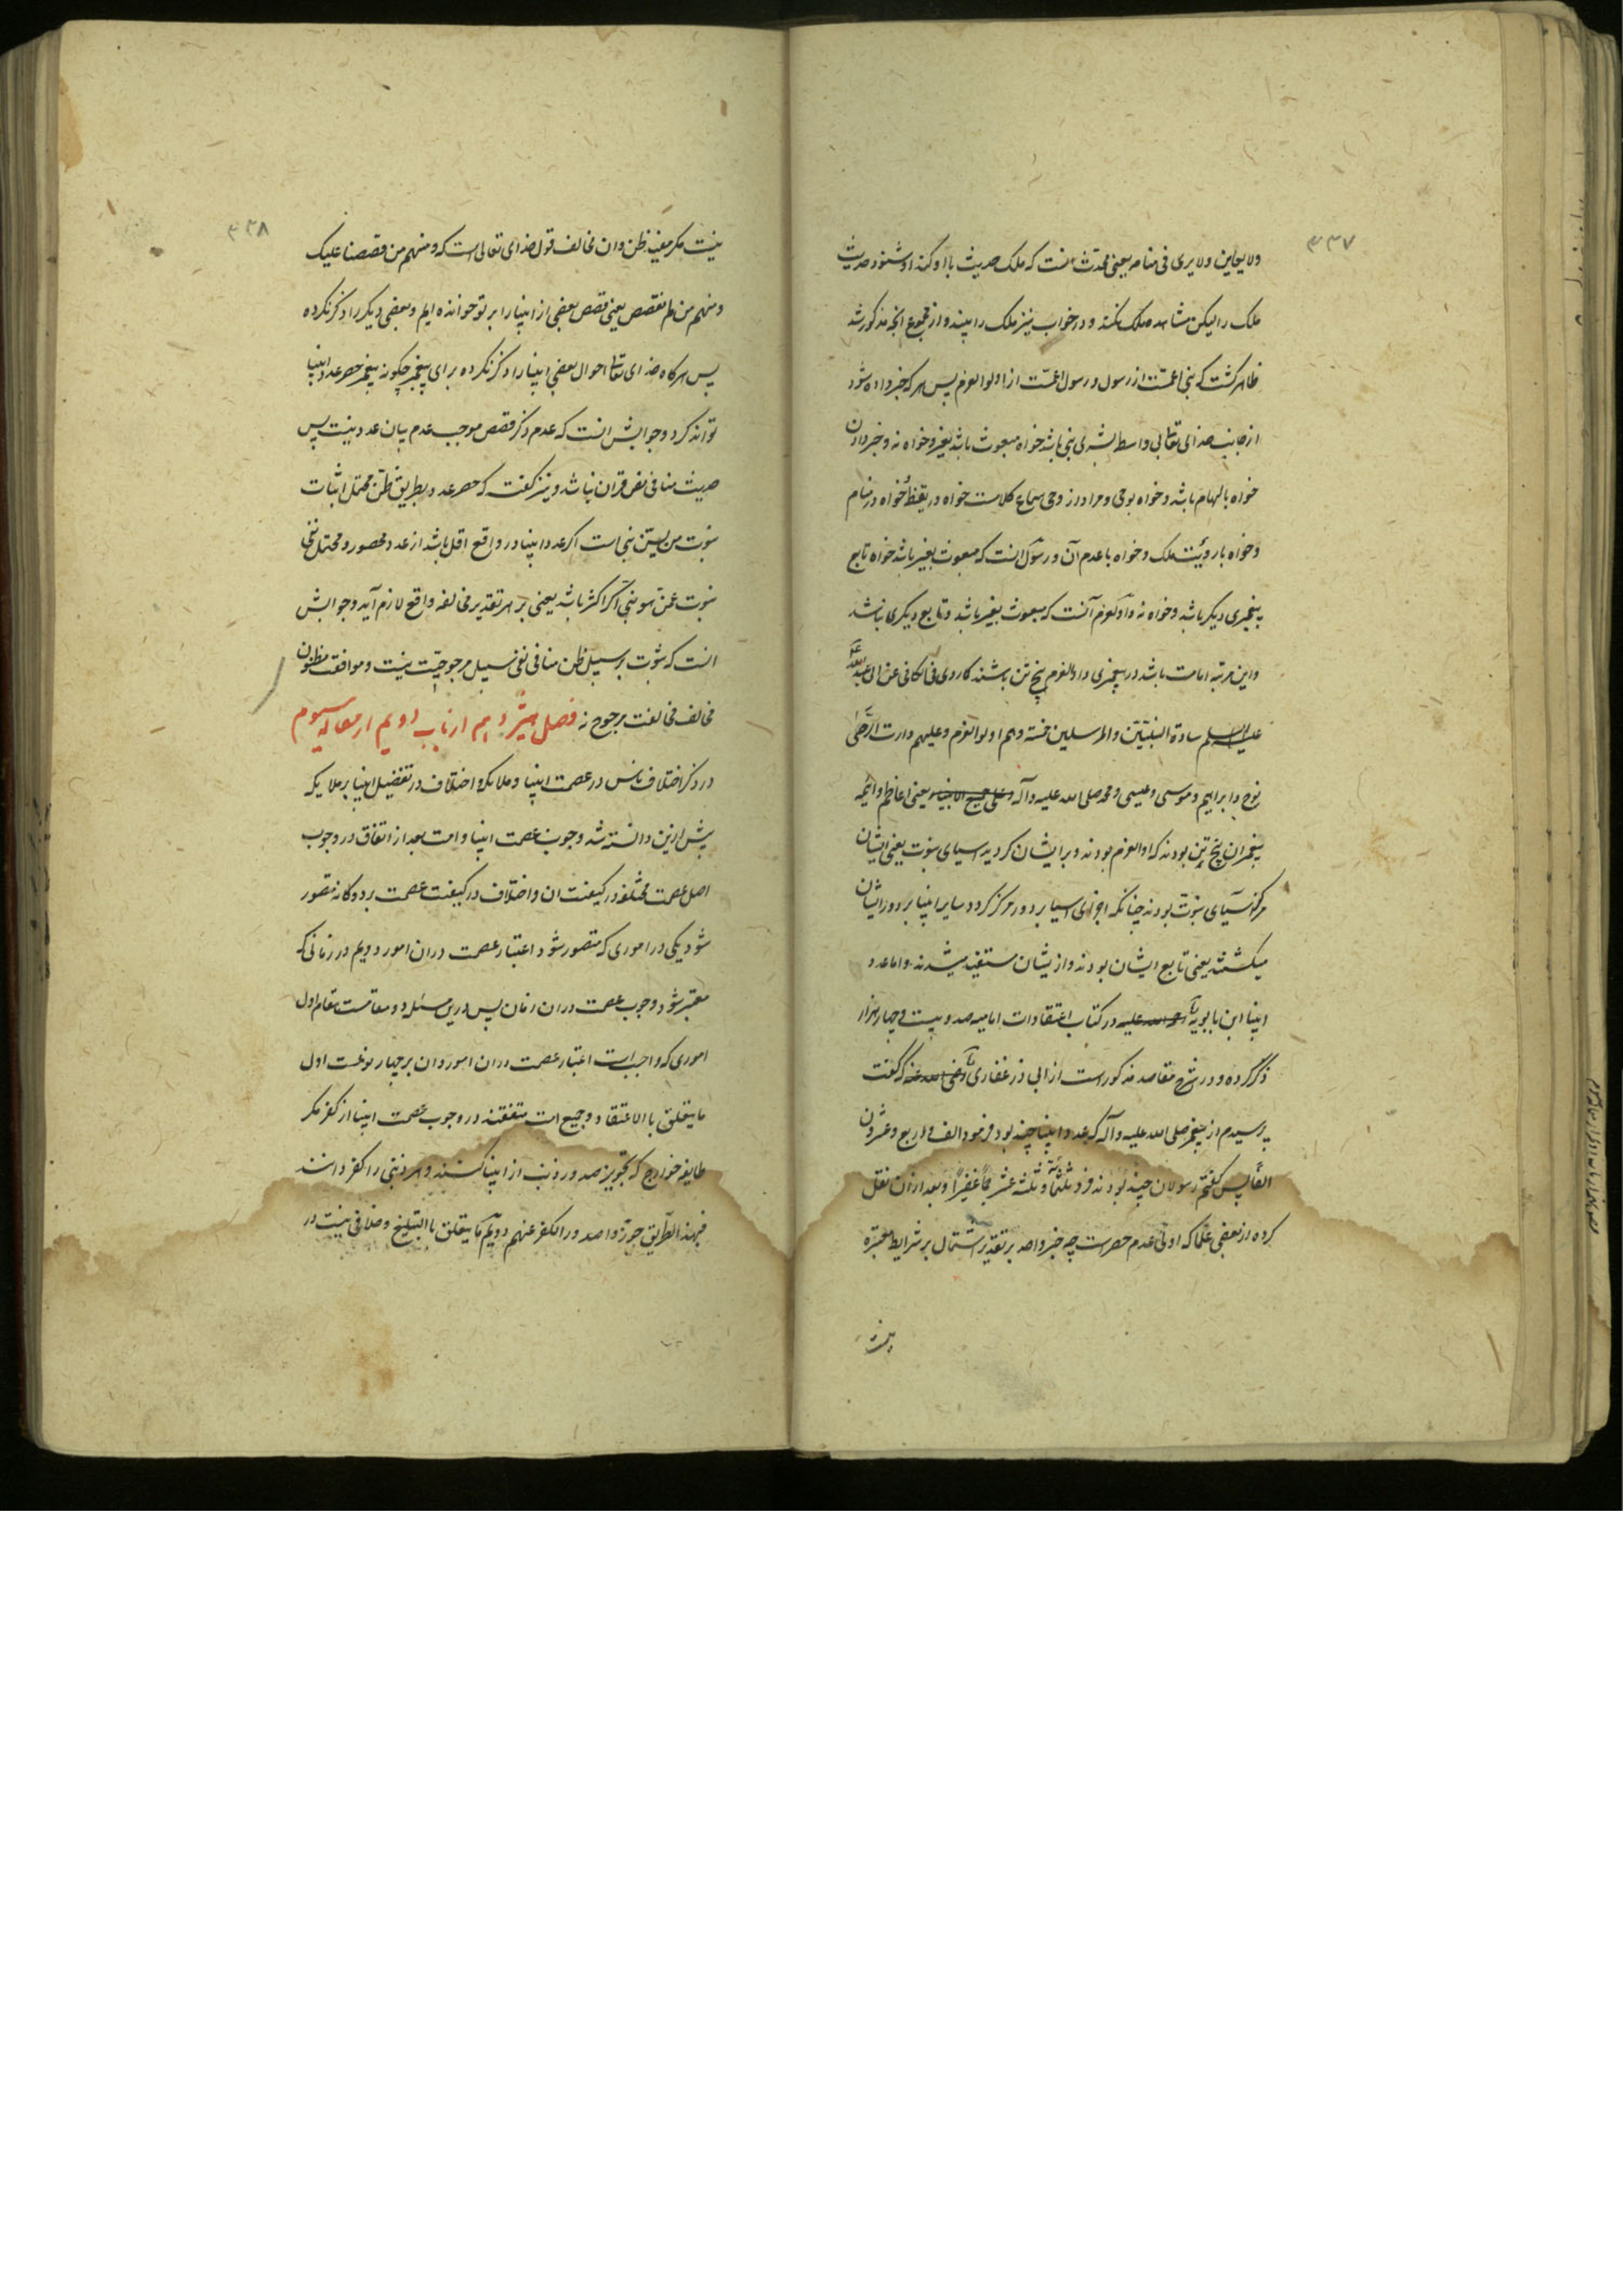 ۴۳۷
ولا یعاین ولا یری فی منامه یعنی محدث آنست که ملک حدیث با او کند او شنود حدیث
ملک را لیکن مشاهده ملک نکند و در خواب نیز ملک را نبیند و از مجموع انچه مذکور شد
ظاهر کشت که نبی اعمست از رسول و رسول اعمست از اولوالعزم پس هر که خبر داده شود
از جانب خدای تعالی بی واسطه بشری نبی باشد خواه مبعوث باشد بغیر و خواه نه و خبر دادن
خواه بالهام باشد و خواه بوحی و مراد از وحی سماع کلامست خواه در یقظه خواه در منام
و خواه با رویت ملک و خواه با عدم آن و رسول انست که مبعوث بغیر باشد خواه تابع
پیغمبری دیکر باشد و خواه نه و اولوالعزم آنست که مبعوث بغیر باشد و تابع دیکری نباشد
و این مرتبه امامت باشد در پیغمبری و اولوالعزم پنج تن باشند کما روی فی الکافی عن ابی عبدالله
علیه السلم سادة النبیین والمرسلین خمسة وهم اولوا العزم وعلیهم دارت الرحی
نوح و ابراهیم و موسی و عیسی و محمد صلی الله علیه و آله و علی جمیع الانبیاء یعنی اعاظم و ائمه
پیغمبران پنج تن بودند که اولوالعزم بودند و بر ایشان کردید اسیای نبوت یعنی ایشان
مرکز آسیای نبوت بودند چنانکه اجزای اسیا بر دور مرکز کردد سایر انبیا بر دور ایشان
میکشتند یعنی تابع ایشان بودند و از یشان مستفید میشدند و اما عدد
انبیا ابن بابویه رحمة الله علیه در کتاب اعتقادات امامیه صد و بیست و چهار هزار
ذکر کرده و در شرح مقاصد مذکور است از ابی ذر غفاری رضی الله عنه که کفت
پرسیدم از پیغمبر صلی الله علیه و آله که عدد انبیا چند بود فرمود الف و اربع و عشرون
الفا پس کفتم رسولان چند بودند فرمود ثلثمائة و ثلثه عشر جما غفیرا و بعد از ان نقل
کرده از بعضی علما که اولی عدم حصرست چه خبر واحد بر تقدیر اشتمال بر شرایط معتبره
نیست
۴۳۸
نیست مکر مفید ظن و ان مخالف قول خدای تعالی است که و منهم من قصصنا علیک
و منهم من لم نقصص یعنی قصص بعضی از انبیا را بر تو خوانده ایم و بعضی دیکر را ذکر نکرده
پس هرکاه خدای تعالی احوال بعضی انبیا را ذکر نکرده برای پیغمبر چکونه پیغمبر حصر عدد انبیا
تواند کرد و جوابش انست که عدم ذکر قصص موجب عدم بیان عدد نیست پس
حدیث منافی نص قران نباشد و نیز کفته که حصر عدد بطریق ظن محتمل اثبات
نبوت من لیس نبی است اکر عدد انبیا در واقع اقل باشد از عدد محصور و محتمل نفی
نبوت عمن هو نبی اکر اکثر باشد یعنی بر هر تقدیر مخالفه واقع لازم آید و جوابش
انست که ثبوت بر سبیل ظن منافی نفی بسبیل مرجوحیت نیست و موافقت مظنون
مخالف مخالفت مرجوح نه فصل هیژدهم از باب دویم از مقاله سیوم
در ذکر اختلاف ناس در عصمت انبیا و ملائکه و اختلاف در تفضیل انبیا بر ملایکه
پیش ازین دانسته شد وجوب عصمت انبیا و امت بعد از اتفاق در وجوب
اصل عصمت مختلفند در کیفیت ان و اختلاف در کیفیت عصمت بر دو کانه متصور
شود یکی در اموری که متصور شود اعتبار عصمت دران امور دویم در زمانی که
معتبر شود وجوب عصمت دران زمان پس درین مسئله دو مقامست مقام اول
اموری که واجب است اعتبار عصمت دران امور و ان بر چهار نوعست اول
ما یتعلق باالاعتقاد و جمیع امت متفقند در وجوب عصمت انبیا از کفر مکر
طایفه خوارج که تجویز صدور ذنب از انبیا کنند و هر ذنبی را کفر دانند
فبهذا الطریق جوزوا صدور الکفر عنهم دویم ما یتعلق باالتبلیغ و خلافی نیست در